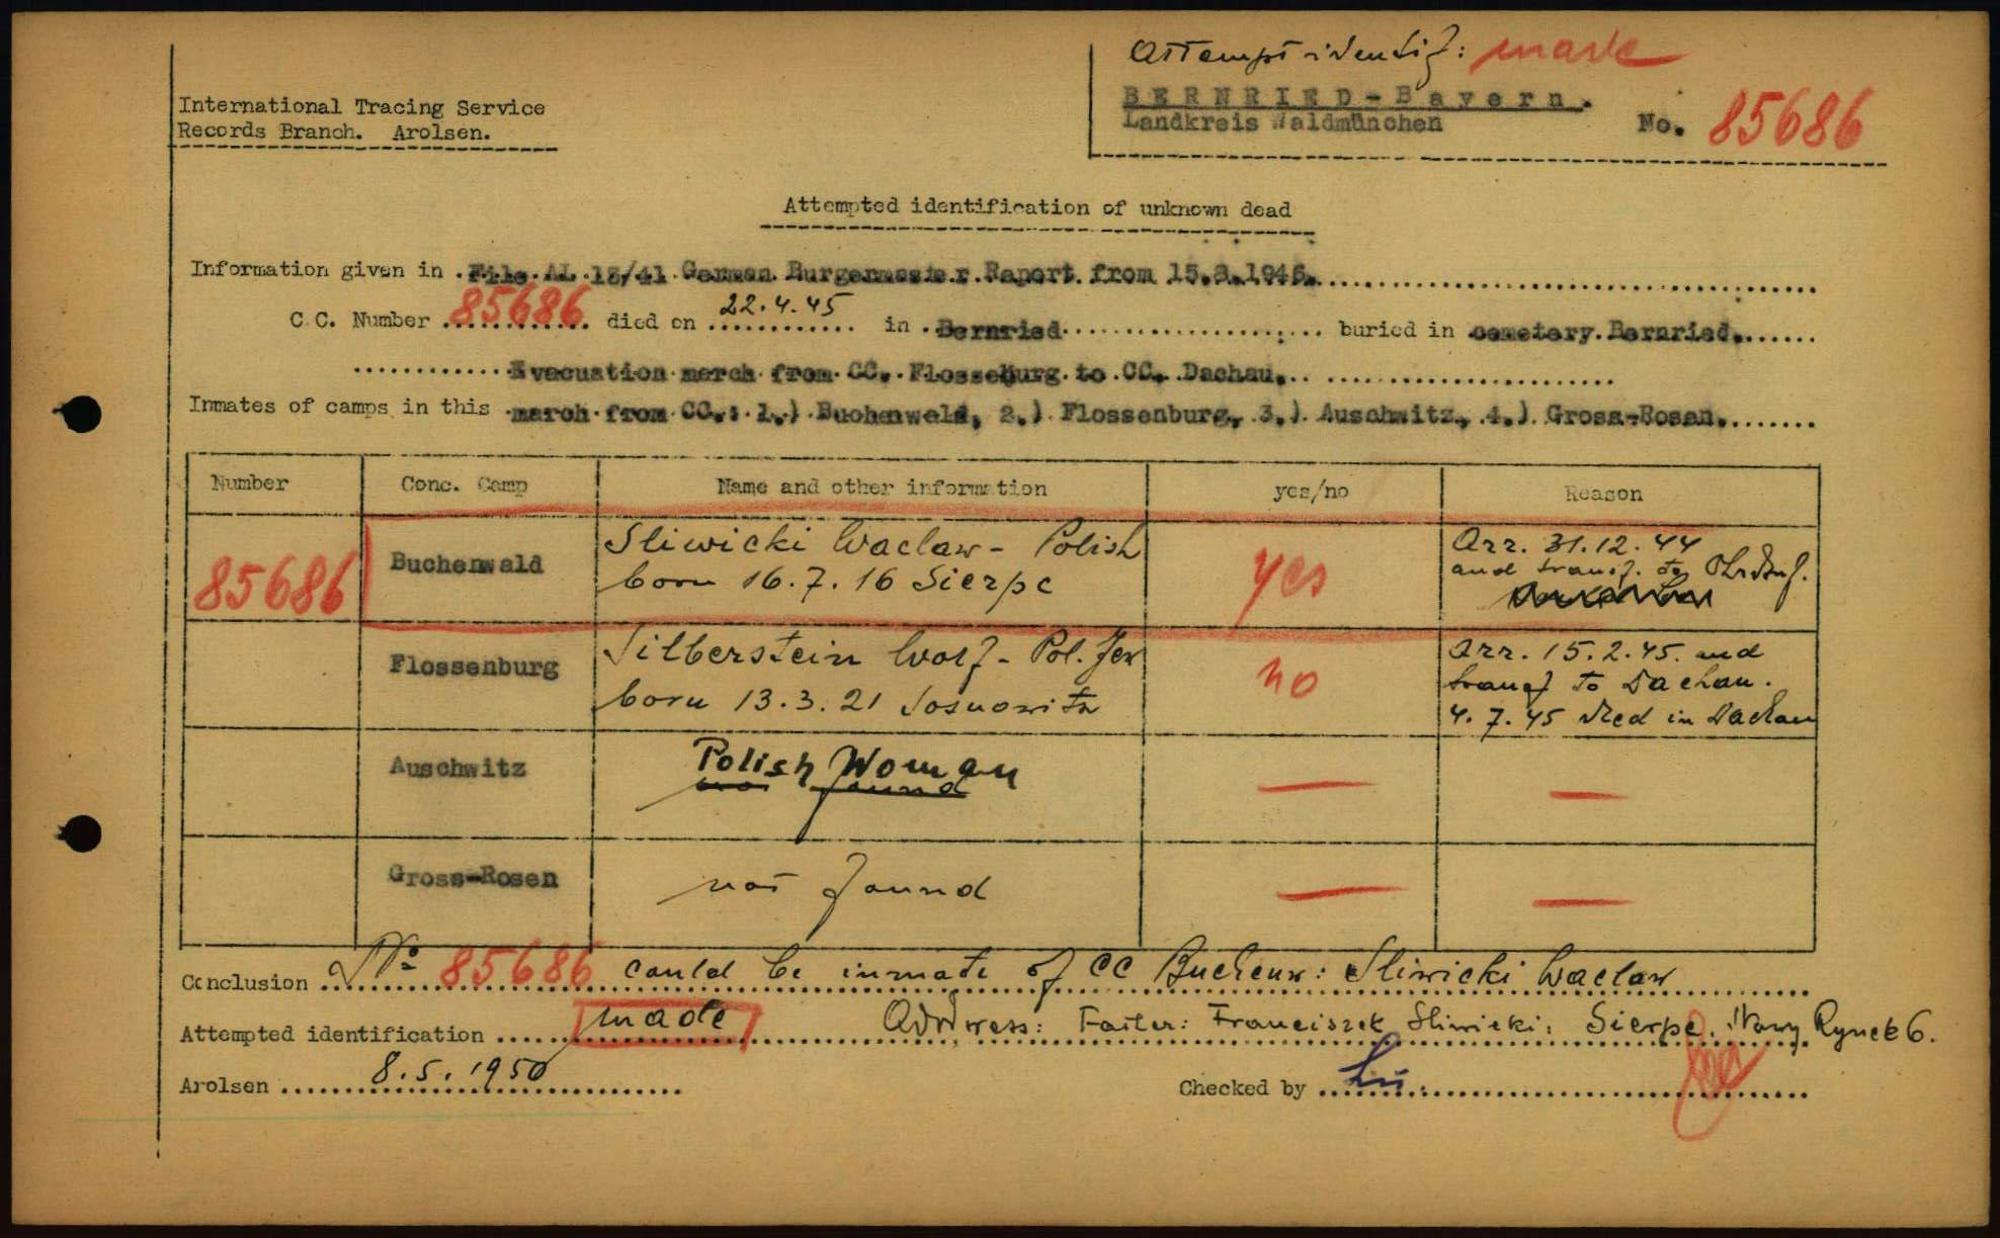 Attempt identif: made
BERNRIED-Bayern.
Landkreis Waldmünchen
No. 85686
International Tracing Service
Records Branch. Arolsen.
Attempted identification of unknown dead
Information given in File AL 13/41 German Burgermaster Raport from 15.3.1946.
C.C. Number 85686 died on 22.4.45 in Bernried buried in cemetery Bernried.
Evacuation march from CC. Flossenburg to CC. Dachau.
Inmates of camps in this march from CC.: 1.) Buchenwald, 2.) Flossenburg, 3.) Auschwitz, 4.) Gross-Rosen.
Number Conc. Camp Name and other information yes/no Reason
85686 Buchenwald Sliwicki Waclaw - Polish yes Arr. 31.12.44
born 16.7.16 Sierpc and transf. to Ohrdruf.
Flossenburg Silberstein Wolf - Pol. Jew no Arr. 15.2.45. and
born 13.3.21 Sosnowitz transf to Dachau.
4.7.45 died in Dachau
Auschwitz Polish Woman
not found
Gross-Rosen not found
Conclusion No 85686 could be inmate of CC Buchenw: Sliwicki Waclaw
Attempted identification made Address: Father: Franciszek Sliwicki: Sierpc. Nowy Rynek 6.
Arolsen 8.5.1950 Checked by